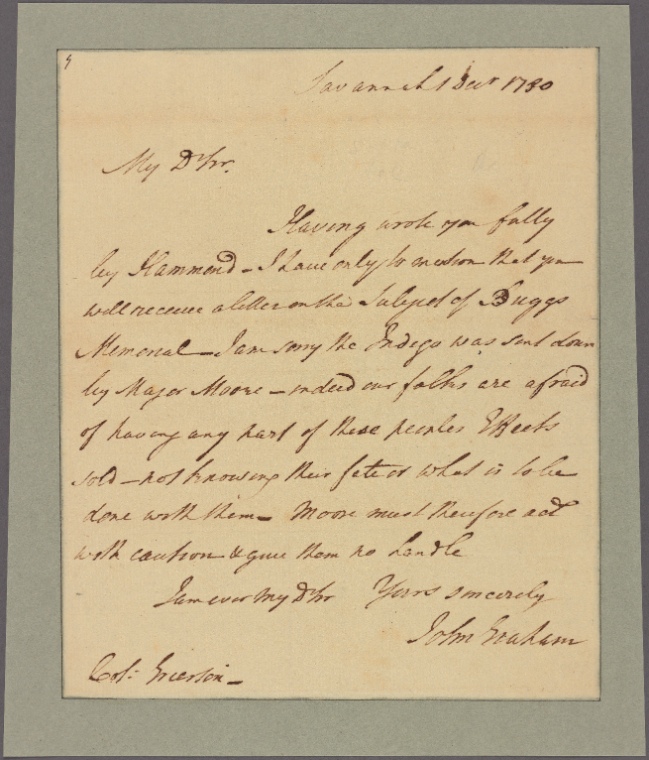 9
Savannah 1 Decr 1780
My Dr Sir.
Having wrote you fully
by Hammond – I have only to mention that you
will receive a letter on the Subject of Buggs
Memorial – I am sorry the Indigo was sent down
by Major Moore – indeed our folks are afraid
of having any part of these peoples Effects
sold – not knowing their fate or what is to be
done with them – Moore must therefore act
with caution & give them no handle
I am ever My Dr Sir Yours sincerely
John Graham
Col: Grierson –